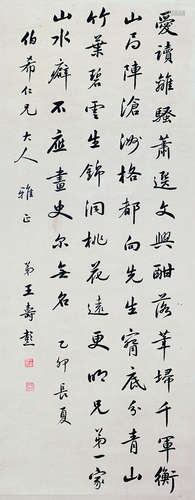 愛讀離騷蕭選文興酣落筆掃千軍衡
山局陣滄洲格都向先生窗底分青山
竹葉碧雲生錦洞桃花遠更明兄第一家
山水癖不應畫史尔無名 乙卯長夏
伯希仁兄大人 雅正
弟王壽彭